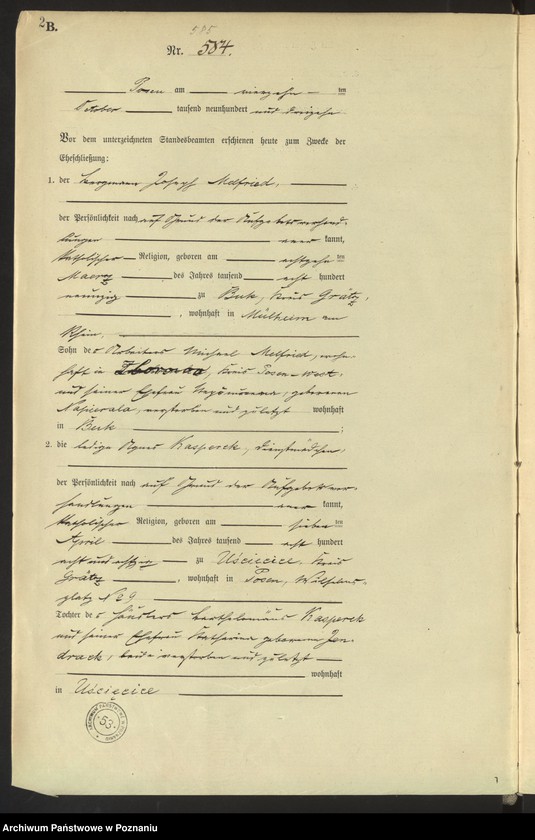 2 B.
505
Nr. 584.
Posen am vierzehn ten
October tausend neunhundert und dreizehn
Vor dem unterzeichneten Standesbeamten erschienen heute zum Zwecke der
Eheschließung:
1. der Bergmann Joseph Melfried,
der Persönlichkeit nach auf Grund der Aufgebotsverhand-
lungen aner kannt,
katholischer Religion, geboren am achtzehn ten
Maerz des Jahres tausend acht hundert
neunzig zu Buk, Kreis Grätz,
, wohnhaft in Mülheim am
Rhein,
Sohn des Arbeiters Michael Melfried, wohn-
haft in Kreis Posen-West,
und seiner Ehefrau geborenen
verstorben und zuletzt wohnhaft
in Buk ;
2. die ledige Agnes Kasperek, Dienstmädchen,
der Persönlichkeit nach auf Grund der Aufgebotsver-
handlungen aner kannt,
katholischer Religion, geboren am sieben ten
April des Jahres tausend acht hundert
acht und achtzig zu Uścięcice, Kreis
Grätz , wohnhaft in Posen, Wilhelms-
platz No 9,
Tochter des Häuslers Bartholomäus Kasperek
und seiner Ehefrau Katharina geborenen Jen-
drack, beide verstorben und zuletzt
wohnhaft
in Uścięcice
ARCHIWUM PAŃSTWOWE W POZNANIU
53
Archiwum Państwowe w Poznaniu